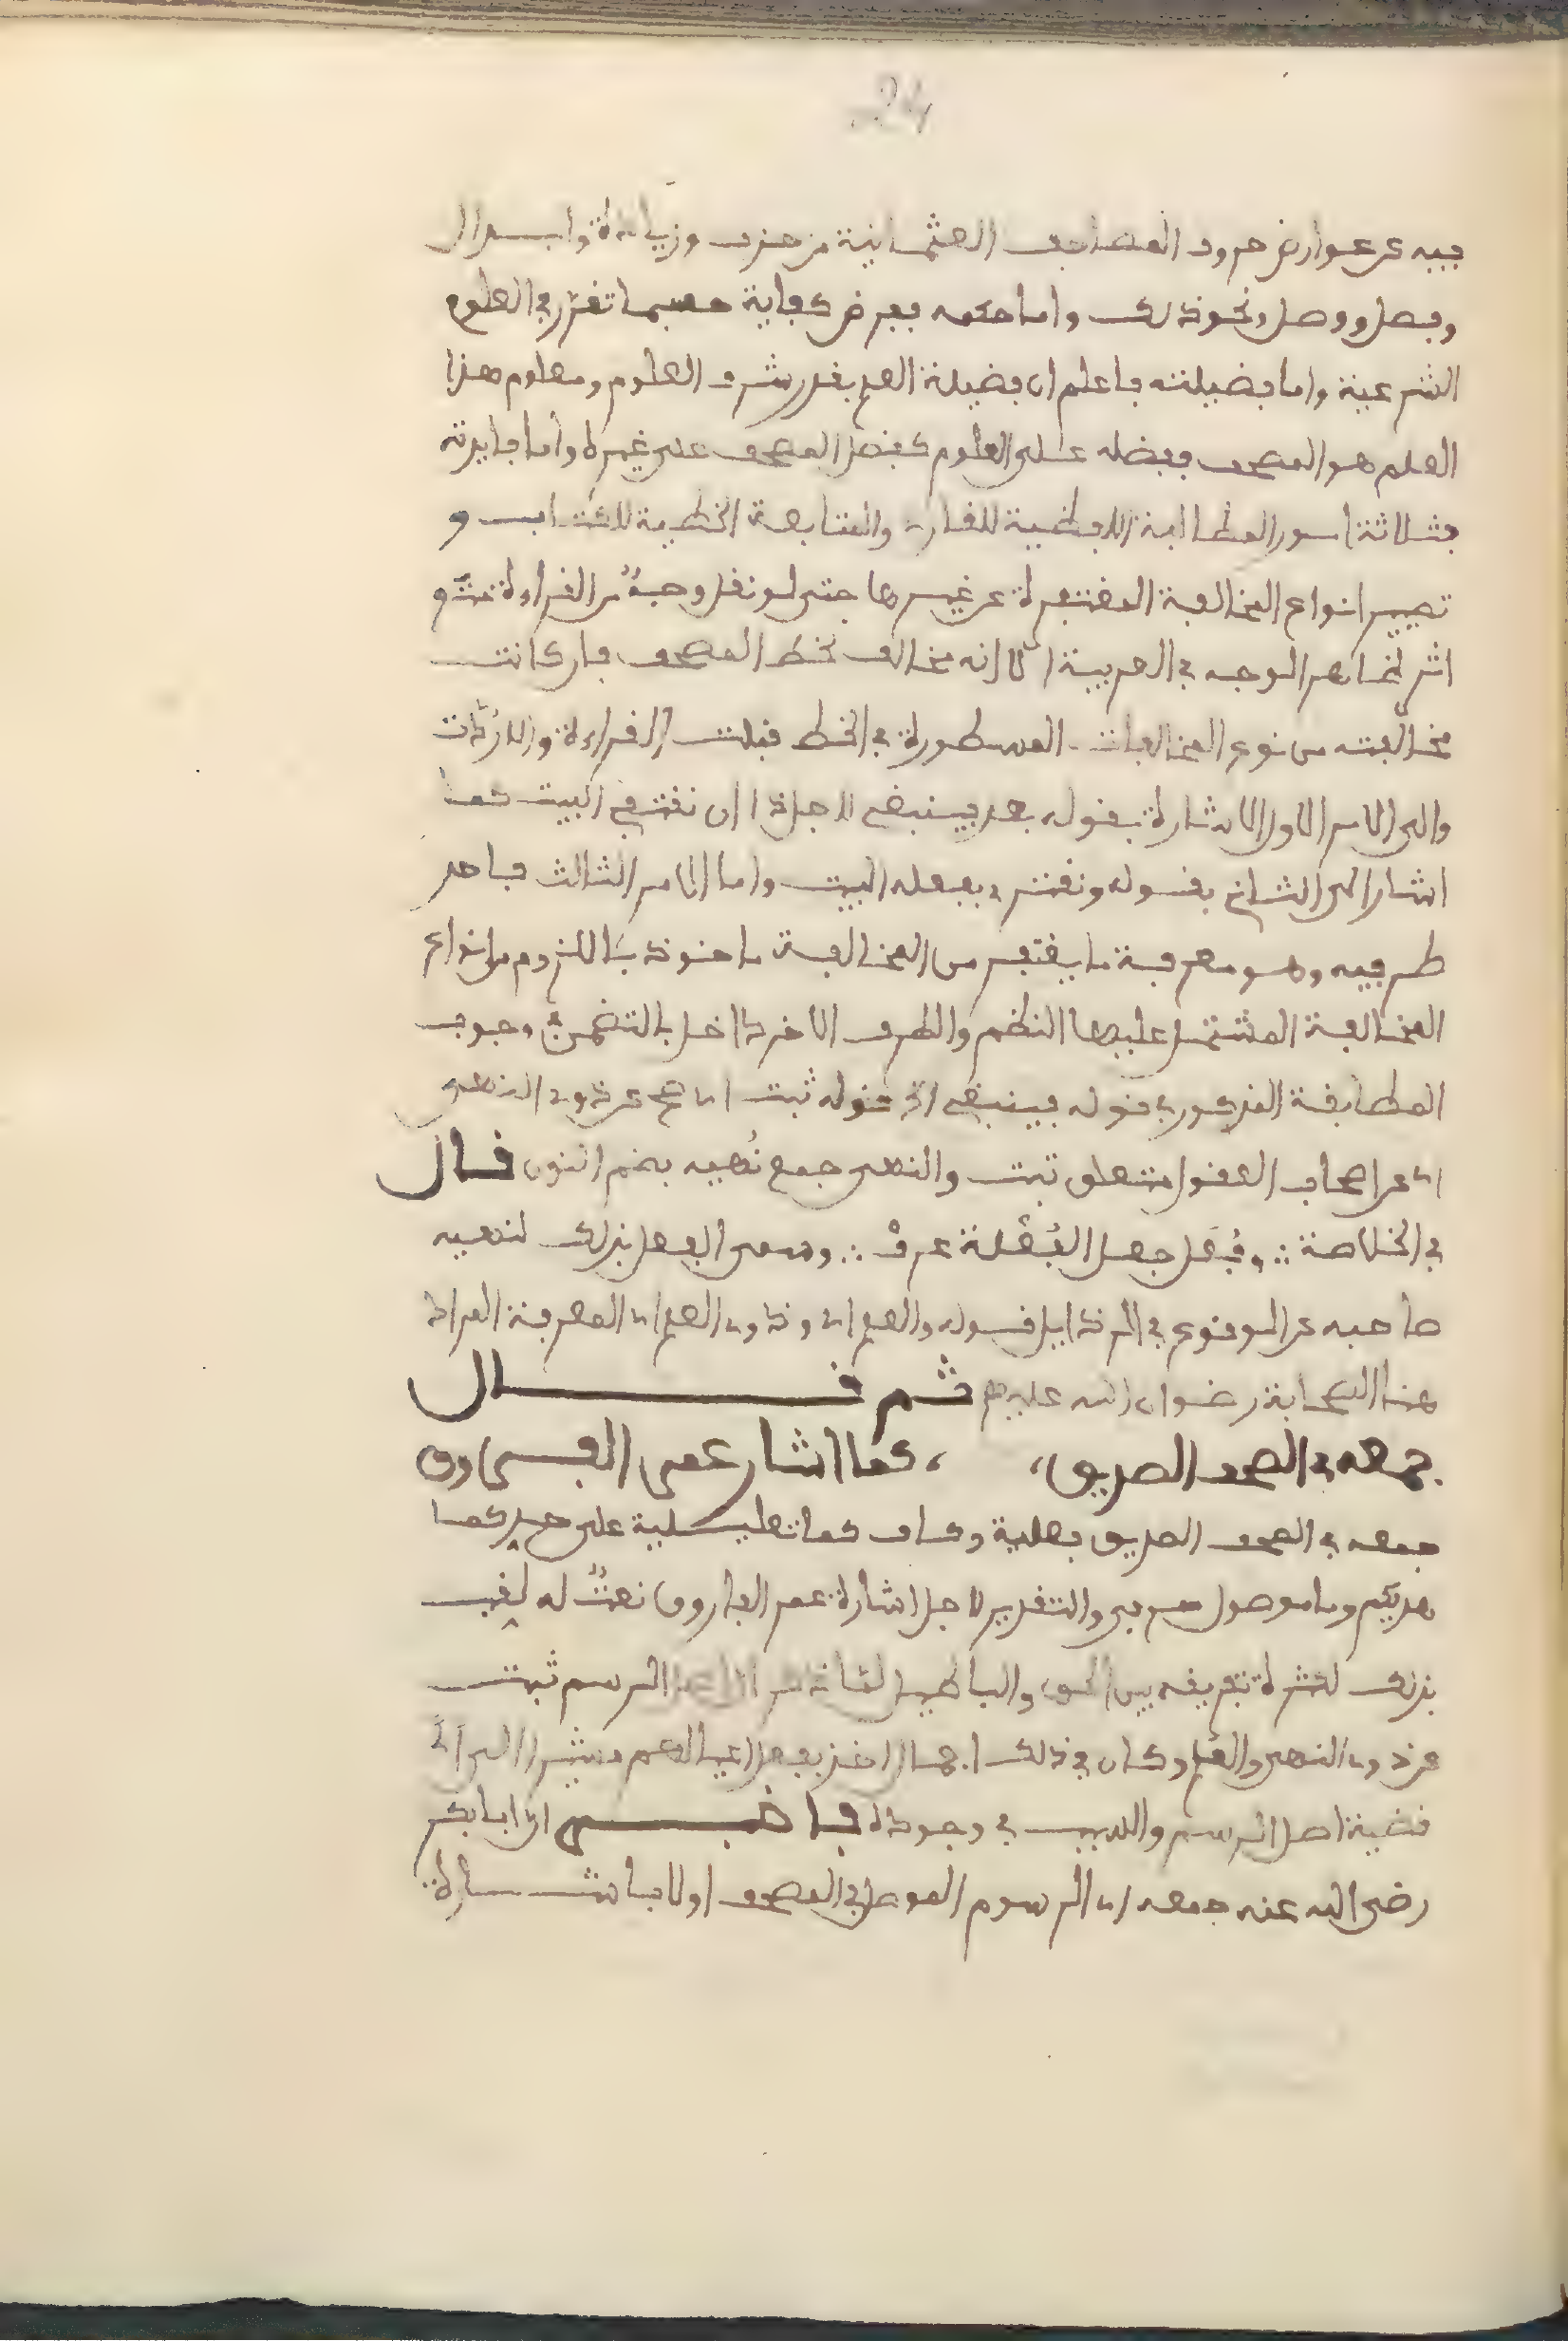 24
فيه عن عوارض حروف المصاحف العثمانية من حذف وزيادة وابدال
وفصل ووصل ونحو ذلك واما حكمه ففرض كفاية حسبما تقرر في العلوم
الشرعية واما فضيلته فاعلم ان فضيلة العلم بقدر شرف المعلوم ومعلوم هذا
العلم هو المصحف ففضله على العلوم كفضل المصحف على غيره واما فايدته
فثلاثة امور المطابقة اللفظية للقارئ والمتابعة الخطية للكتاب و
تمييز انواع المخالفة المغتفرة عن غيرها حتى لو نقل وجهٌ من القراءة
اثر ظاهر الوجه في العربية الا انه مخالف لخط المصحف فان كانت
مخالفته من نوع المخالفات المسطورة في الخط قبلت القراءة والا ردّت
والى الامر الاول الاشارة بقوله بعد فينبغي لاجل ذا ان نقتفي البيت كما
اشار الى الثاني بقوله ونقتدي بفعله البيت واما الامر الثالث فاحد
طرفيه وهو معرفة ما يغتفر من المخالفة ماخوذ باللزوم من انواع
المخالفة المشتمل عليها النظم والطرف الاخر داخل بالتضمن في وجوب
المطابقة المذكور في قوله فينبغي الخ قوله ثبت اي صح عن ذوي النهى
اي عن اصحاب العقول متعلق بثبت والنهى جمع نُهيه بضم النون قال
في الخلاصة ∴ وفُعَل جمعا لفُعْلة عرفْ ∴ وسمى العقل بذلك لنهيه
صاحبه عن الوقوع في الرذايل قوله والعلم اي وذوي العلم اي المعرفة المراد
هنا الصحابة رضوان الله عليهم ثم قال
جمعه في الصحف الصديق، ، كما اشار عمر الفاروق
جمعه في الصحف الصديق فعلية وكاف كما تعليلية على حد كما
هديكم وما موصول حرفي والتقدير لاجل اشارة عمر الفاروق نعتٌ له لقب
بذلك لكثرة تفريقه بين الحق والباطل لما ذكر ان اصل الرسم ثبت
عن ذوي النهى والعلم وكان في ذلك اجمال اخذ يفصل مشيرا الى ان
قضية اصل الرسم والسبب في وجوده فاخبر ان ابا بكر
رضي الله عنه جمعه اي الرسوم الموصل في المصحف اولا باشارة